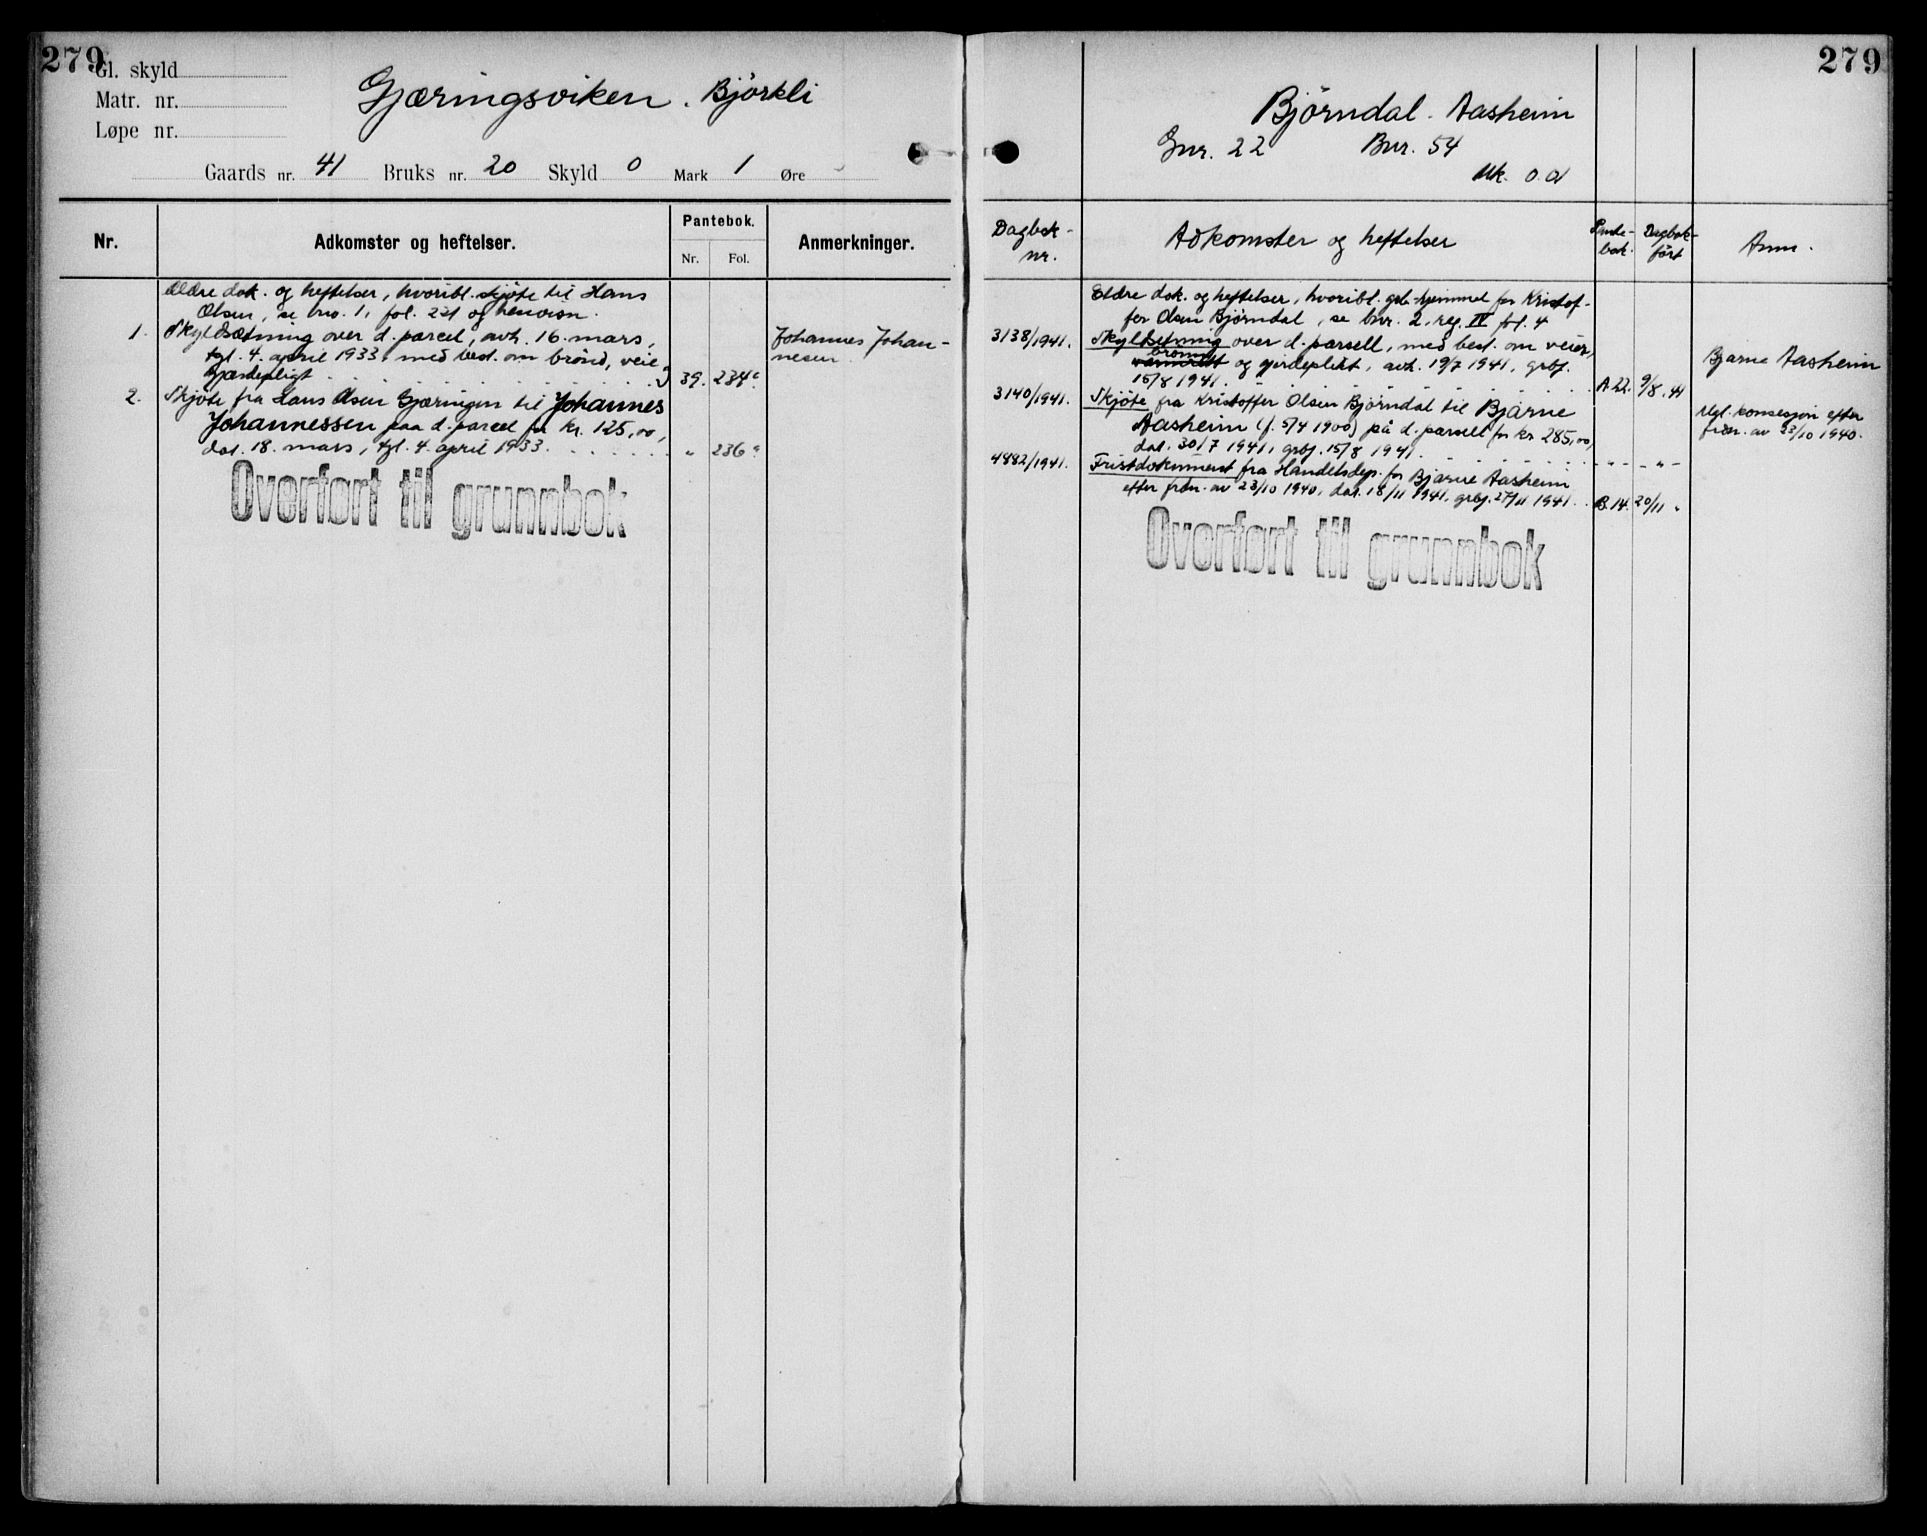 279
Gl. skyld
Matr. nr.
Løpe nr.
Gjæringsviken. Björkli
Gaards nr. 41 Bruks nr. 20 Skyld 0 Mark 1 Øre
Nr.
Adkomster og heftelser.
Pantebok.
Nr. Fol.
Anmerkninger.
Ældre dok. og heftelser, hvoribl. skjöte til Hans
Olsen, se bno. 1, fol. 221 og
1. Skyldsætning over d. parcel, avh. 16. mars,
tgl. 4. april 1933, med best. om brönd, veie og
gjærdepligt 39. 234
Johannes Johan-
nesen
2. Skjöte fra Hans Olsen Gjæringen til Johannes
Johannessen paa d. parcel for kr. 125,00,
dat. 18. mars, tgl. 4. april 1933. " 236
Overført til grunnbok
279
Björndal. Aasheim
Gnr. 22 Bnr. 54
Mk. 0.01
Dagbok-
nr.
Adkomster og heftelser
Pante-
bok.
Dagbok-
fört
Anm.
Eldre dok. og heftelser, hvoribl. grb. hjemmel for Kristof-
fer Olsen Bjørndal, se bnr. 2, reg. IV fol. 4
3138/1941. Skyldsetning over d. parsell, med best. om veier,
brönn og gjerdeplikt, avh. 19/7 1941, grbf.
15/8 1941. A 22. 9/8. 41
Bjarne Aasheim
3140/1941. Skjöte fra Kristoffer Olsen Björndal til Bjarne
Aasheim (f. 5/4 1900) på d. parsell for kr 285,00,
dat. 30/7 1941, grbf. 15/8 1941. - " - - " -
Mgl. konsesjon efter
fror. av 23/10 1940.
4882/1941. Fristdokument fra Handelsdep. for Bjarne Aasheim
efter fror. av 23/10 1940, dat. 18/11 1941, grbf. 27/11 1941. B.14. 20/11 "
Overført til grunnbok